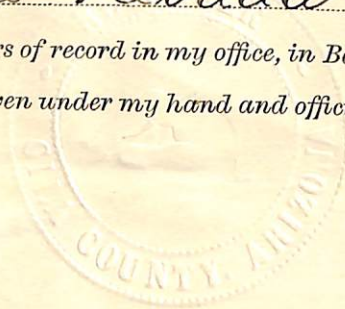 rs of record in my office, in Bo
ven under my hand and offic
GIL
COUNTY, ARIZO